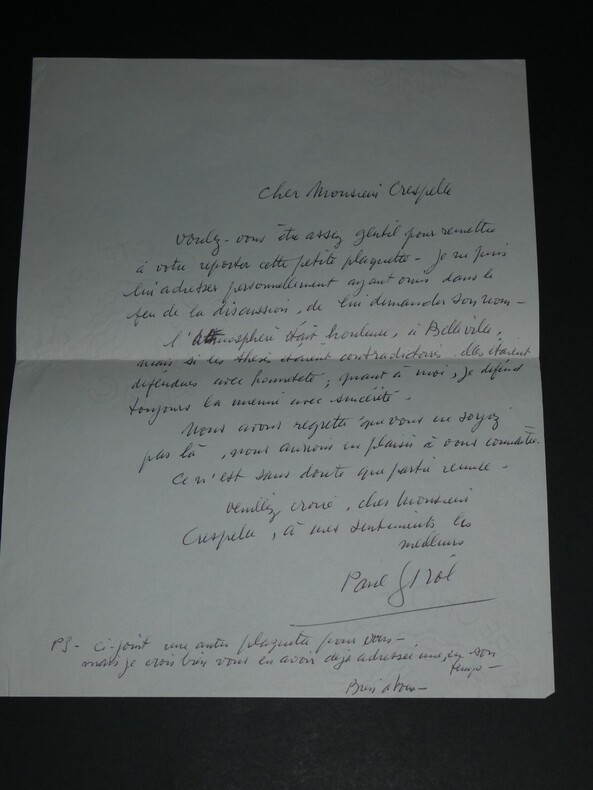 Cher Monsieur Crespelle
Voulez-vous être assez gentil pour remettre
à votre reporter cette petite plaquette - Je ne puis
lui adresser personnellement ayant omis dans le
feu de la discussion, de lui demander son nom -
l'Atmosphère était houleuse, à Belleville,
mais si les thèses étaient contradictoires elles étaient
défendues avec honnêteté ; quant à moi, je défend
toujours la mienne avec sincérité -
Nous avons regretté que vous ne soyez
pas là, nous aurions eu plaisir à vous connaître.
Ce n'est sans doute que partie remise -
Veuillez croire, cher Monsieur
Crespelle, à mes sentiments les
meilleurs
Paul
PS - Ci-joint une autre plaquette pour vous -
mais je crois bien vous en avoir déjà adressée une, en son
temps -
Bien à vous -